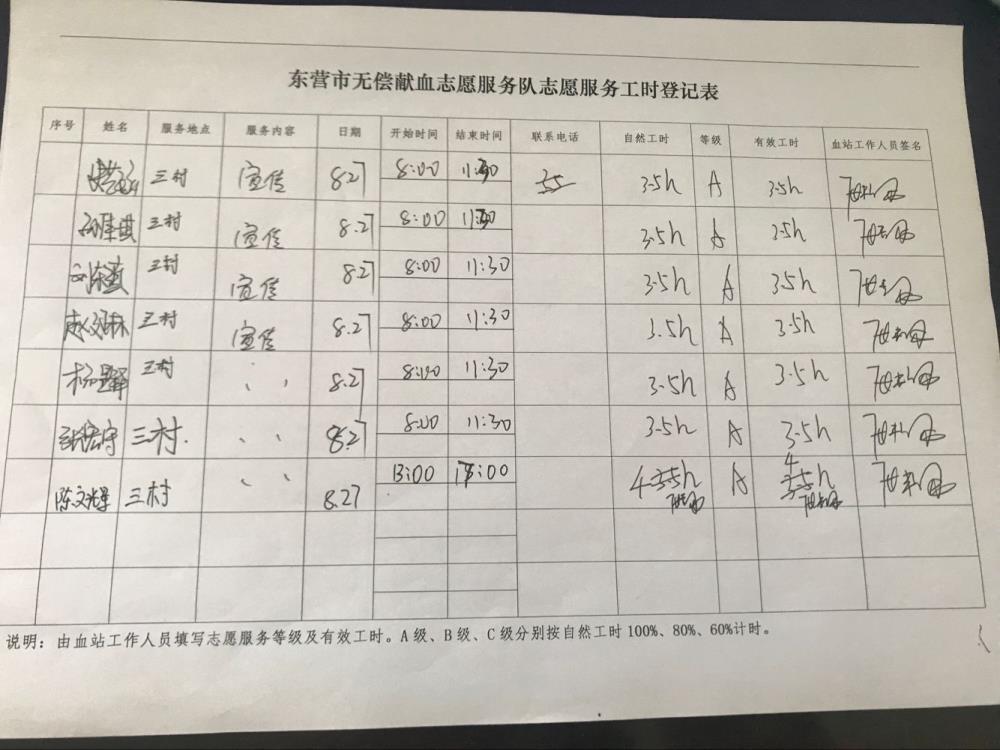 东营市无偿献血志愿服务队志愿服务工时登记表
序号 姓名 服务地点 服务内容 日期 开始时间 结束时间 联系电话 自然工时 等级 有效工时 血站工作人员签名
三村 宣传 8.27 8:00 11:30 3.5h A 3.5h
三村 宣传 8.27 8:00 11:30 3.5h A 3.5h
三村 宣传 8.27 8:00 11:30 3.5h A 3.5h
三村 宣传 8.27 8:00 11:30 3.5h A 3.5h
三村 、、 8.27 8:00 11:30 3.5h A 3.5h
三村. 、、 8.27 8:00 11:30 3.5h A 3.5h
陈文光 三村 、、 8.27 13:00 17:00 4 3.5h A 4 3.5h
说明：由血站工作人员填写志愿服务等级及有效工时。A级、B级、C级分别按自然工时100%、80%、60%计时。